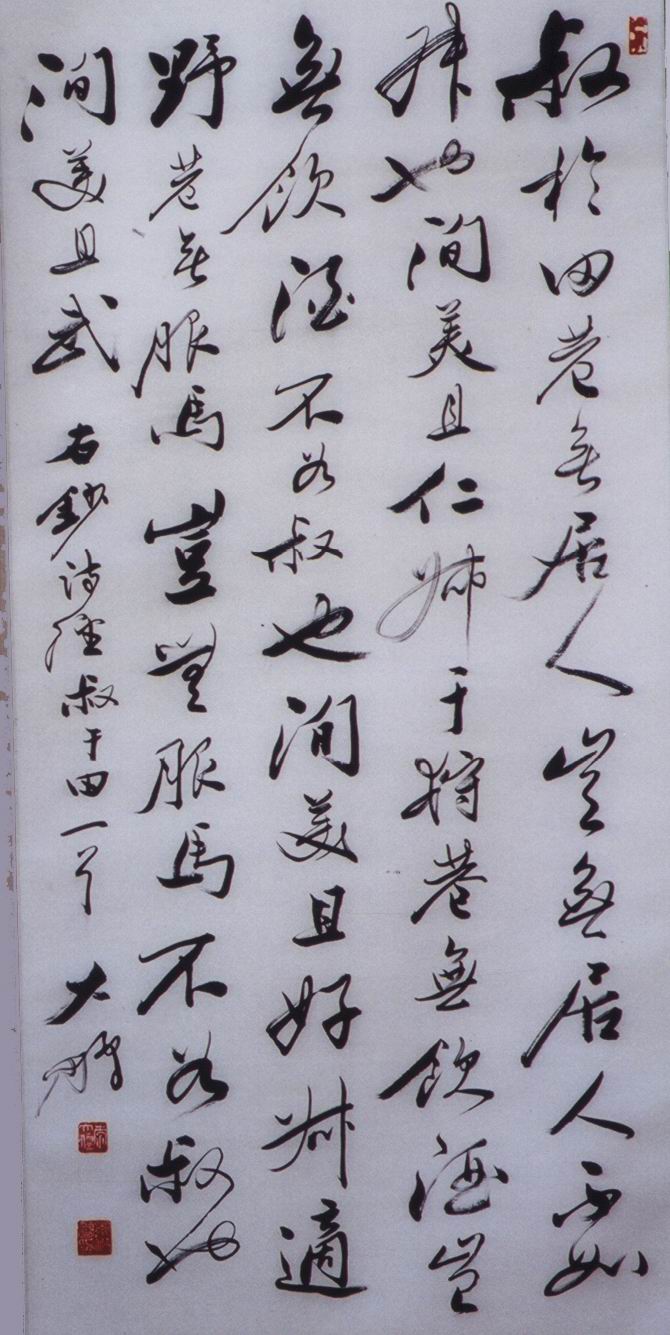 叔於田巷無居人豈無居人不如
叔也洵美且仁叔于狩巷無飲酒豈
無飲酒不如叔也洵美且好叔適
野巷無服馬豈無服馬不如叔也
洵美且武 右錄詩經叔于田一首 大鵬